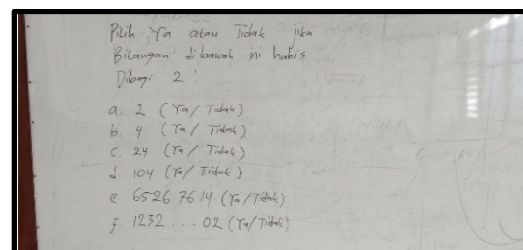 Pilih Ya atau Tidak jika
Bilangan dibawah ini habis
Dibagi 2 !
a. 2 (Ya/ Tidak)
b. 4 (Ya/ Tidak)
c. 24 (Ya/ Tidak)
d. 104 (Ya/ Tidak)
e. 6526 76 14 (Ya/Tidak)
f. 1232 ... 02 (Ya/Tidak)